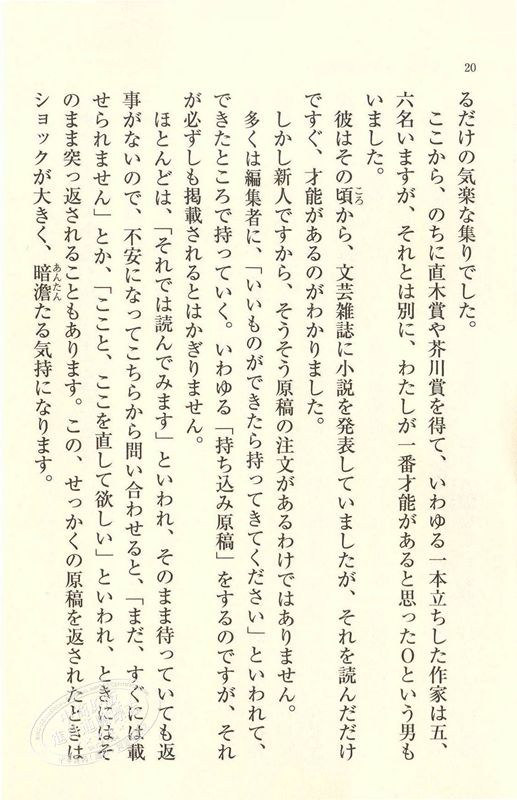 20
るだけの気楽な集りでした。
ここから、のちに直木賞や芥川賞を得て、いわゆる一本立ちした作家は五、
六名いますが、それとは別に、わたしが一番才能があると思ったOという男も
いました。
彼はその頃から、文芸雑誌に小説を発表していましたが、それを読んだだけ
ころ
ですぐ、才能があるのがわかりました。
しかし新人ですから、そうそう原稿の注文があるわけではありません。
多くは編集者に、「いいものができたら持ってきてください」といわれて、
できたところで持っていく。いわゆる「持ち込み原稿」をするのですが、それ
が必ずしも掲載されるとはかぎりません。
ほとんどは、「それでは読んでみます」といわれ、そのまま待っていても返
事がないので、不安になってこちらから問い合わせると、「まだ、すぐには載
せられません」とか、「ここと、ここを直して欲しい」といわれ、ときにはそ
のまま突っ返されることもあります。この、せっかくの原稿を返されたときは
ショックが大きく、暗澹たる気持になります。
あんたん